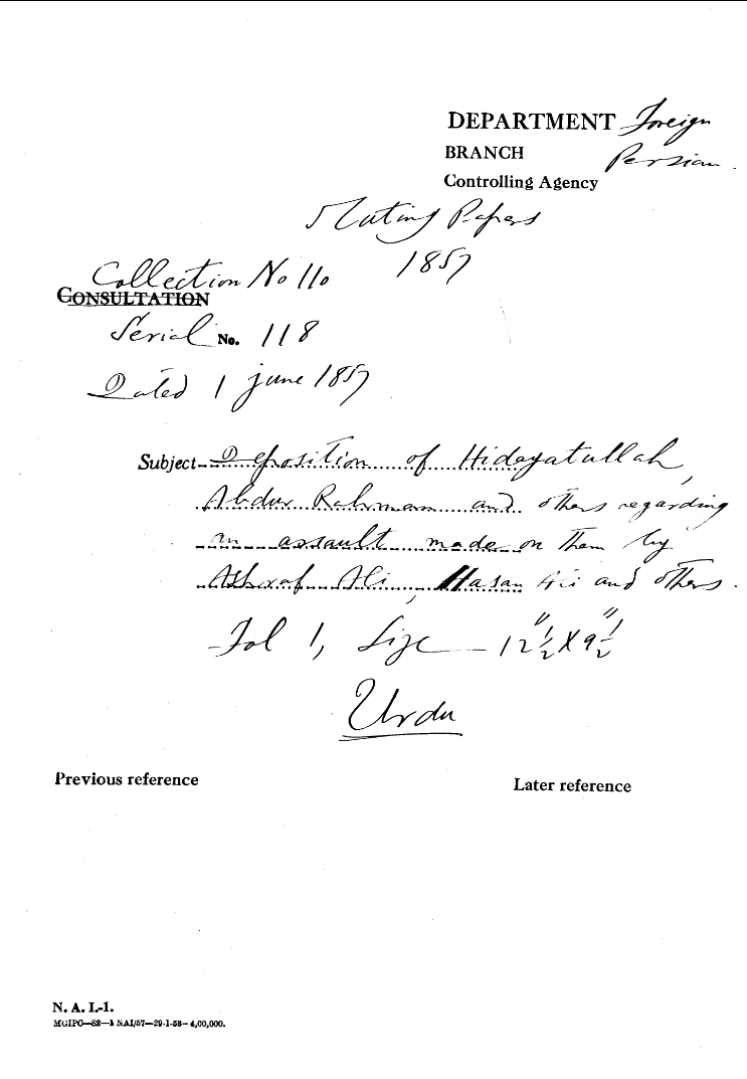 DEPARTMENT Foreign
BRANCH Persian.
Controlling Agency
Mutiny Papers
1857
Collection No 110
CONSULTATION
Serial No. 118
Dated 1 june 1857
Subject Deposition of Hidayatullah,
Abdur Rahman and others regarding
an assault made on them by
Ashraf Ali, Hasan Ali and others.
Fol 1, Size — 12½" X 9½"
Urdu
Previous reference Later reference
N. A. I.-1.
MGIPC—S2—3 NAI/57—29-1-58—4,00,000.